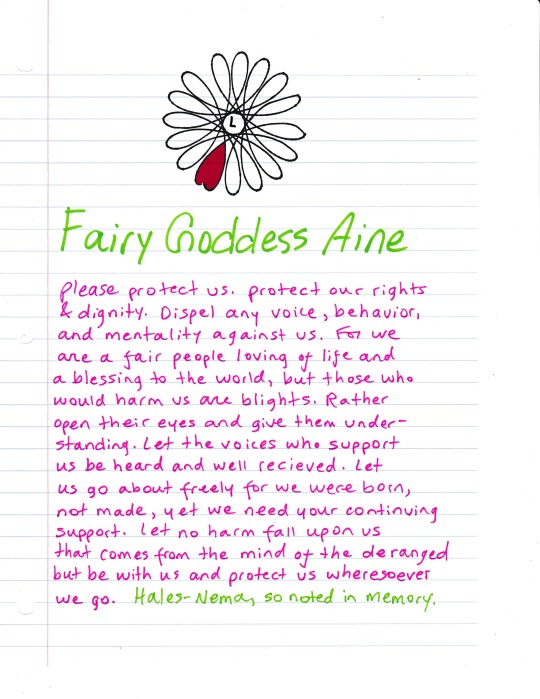 L
Fairy Goddess Aine
Please protect us. protect our rights
& dignity. Dispel any voice, behavior,
and mentality against us. For we
are a fair people loving of life and
a blessing to the world, but those who
would harm us are blights. Rather
open their eyes and give them under-
standing. Let the voices who support
us be heard and well recieved. Let
us go about freely for we were born,
not made, yet we need your continuing
support. Let no harm fall upon us
that comes from the mind of the deranged
but be with us and protect us wheresoever
we go. Hales-Nema, so noted in memory.